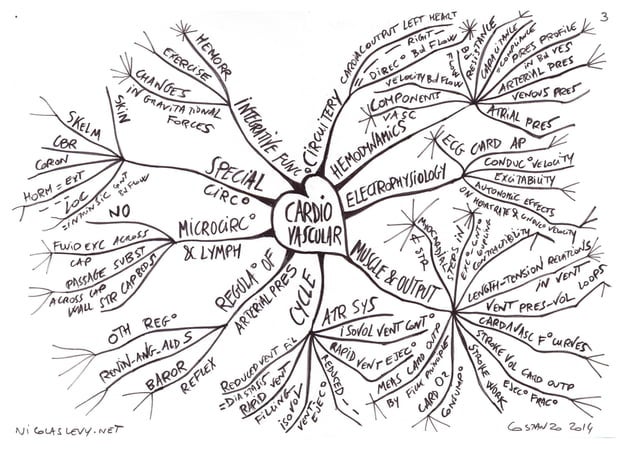 3
CARDIO
VASCULAR
CIRCUITERY
CARDIAC OUTPUT LEFT HEART
-- RIGHT --
= DIREC° Bd FLOW
HEMODYNAMICS
VELOCITY Bd FLOW
COMPONENTS
VASC
Bd FLOW
RESISTANCE
CAPACITANCE
= COMPLIANCE
PRES PROFILE
IN Bd VES
ARTERIAL PRES
VENOUS PRES
ATRIAL PRES
ELECTROPHYSIOLOGY
ECG
CARD AP
CONDUC° VELOCITY
EXCITABILITY
AUTONOMIC EFFECTS
ON HEARTRATE & CONDUC° VELOCITY
MUSCLE & OUTPUT
MYOCARDIAL
STR
STEPS IN
EXC° CONT°
COUPLING
CONTRACTIBILITY
LENGTH-TENSION RELATIONS
IN VENT
VENT PRES-VOL LOOPS
CARDAVASC F° CURVES
STROKE VOL CARD OUTP
EJEC° FRAC°
STROKE
WORK
CARD O2
CONSUMP°
MEAS CARD OUTP
BY FICK PRINCIPLE
CYCLE
ATR SYS
ISOVOL VENT CONT°
RAPID VENT EJEC°
REDUCED --
ISOVOL
VENT EJEC°
RAPID VENT
FILLING
REDUCED VENT FIL
= DIASTASIS
REGULA° OF
ARTERIAL PRES
BAROR
REFLEX
RENIN-ANG-ALDS
OTH REG°
MICROCIRC°
& LYMPH
STR CAPBEDS
PASSAGE SUBST
ACROSS CAP
WALL
FLUID EXC ACROSS
CAP
NO
SPECIAL
CIRC°
LOC
= INTRINSIC CONT
Bd FLOW
HORM = EXT
CORON
CBR
SKELM
SKIN
INTEGRATIVE FUNC°
CHANGES
IN GRAVITATIONAL
FORCES
EXERCISE
HEMORR
NICOLASLEVY.NET
COSTANZO 2014